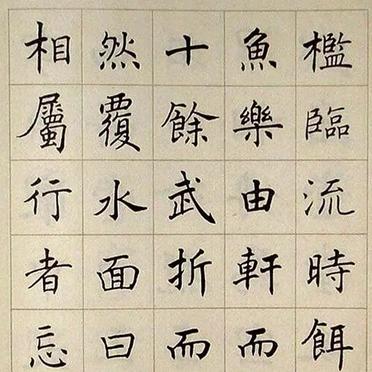 檻臨流時餌
魚樂由軒而
十餘武折而
然覆水面曰
相屬行者忘